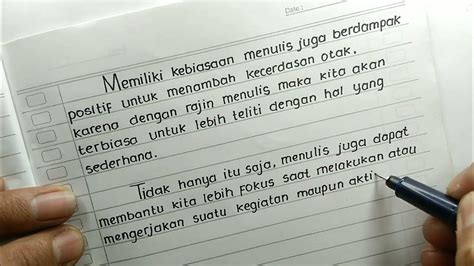 Date :
Memiliki kebiasaan menulis juga berdampak
positif untuk menambah kecerdasan otak,
karena dengan rajin menulis maka kita akan
terbiasa untuk lebih teliti dengan hal yang
sederhana.
Tidak hanya itu saja, menulis juga dapat
membantu kita lebih fokus saat melakukan atau
mengerjakan suatu kegiatan maupun akti